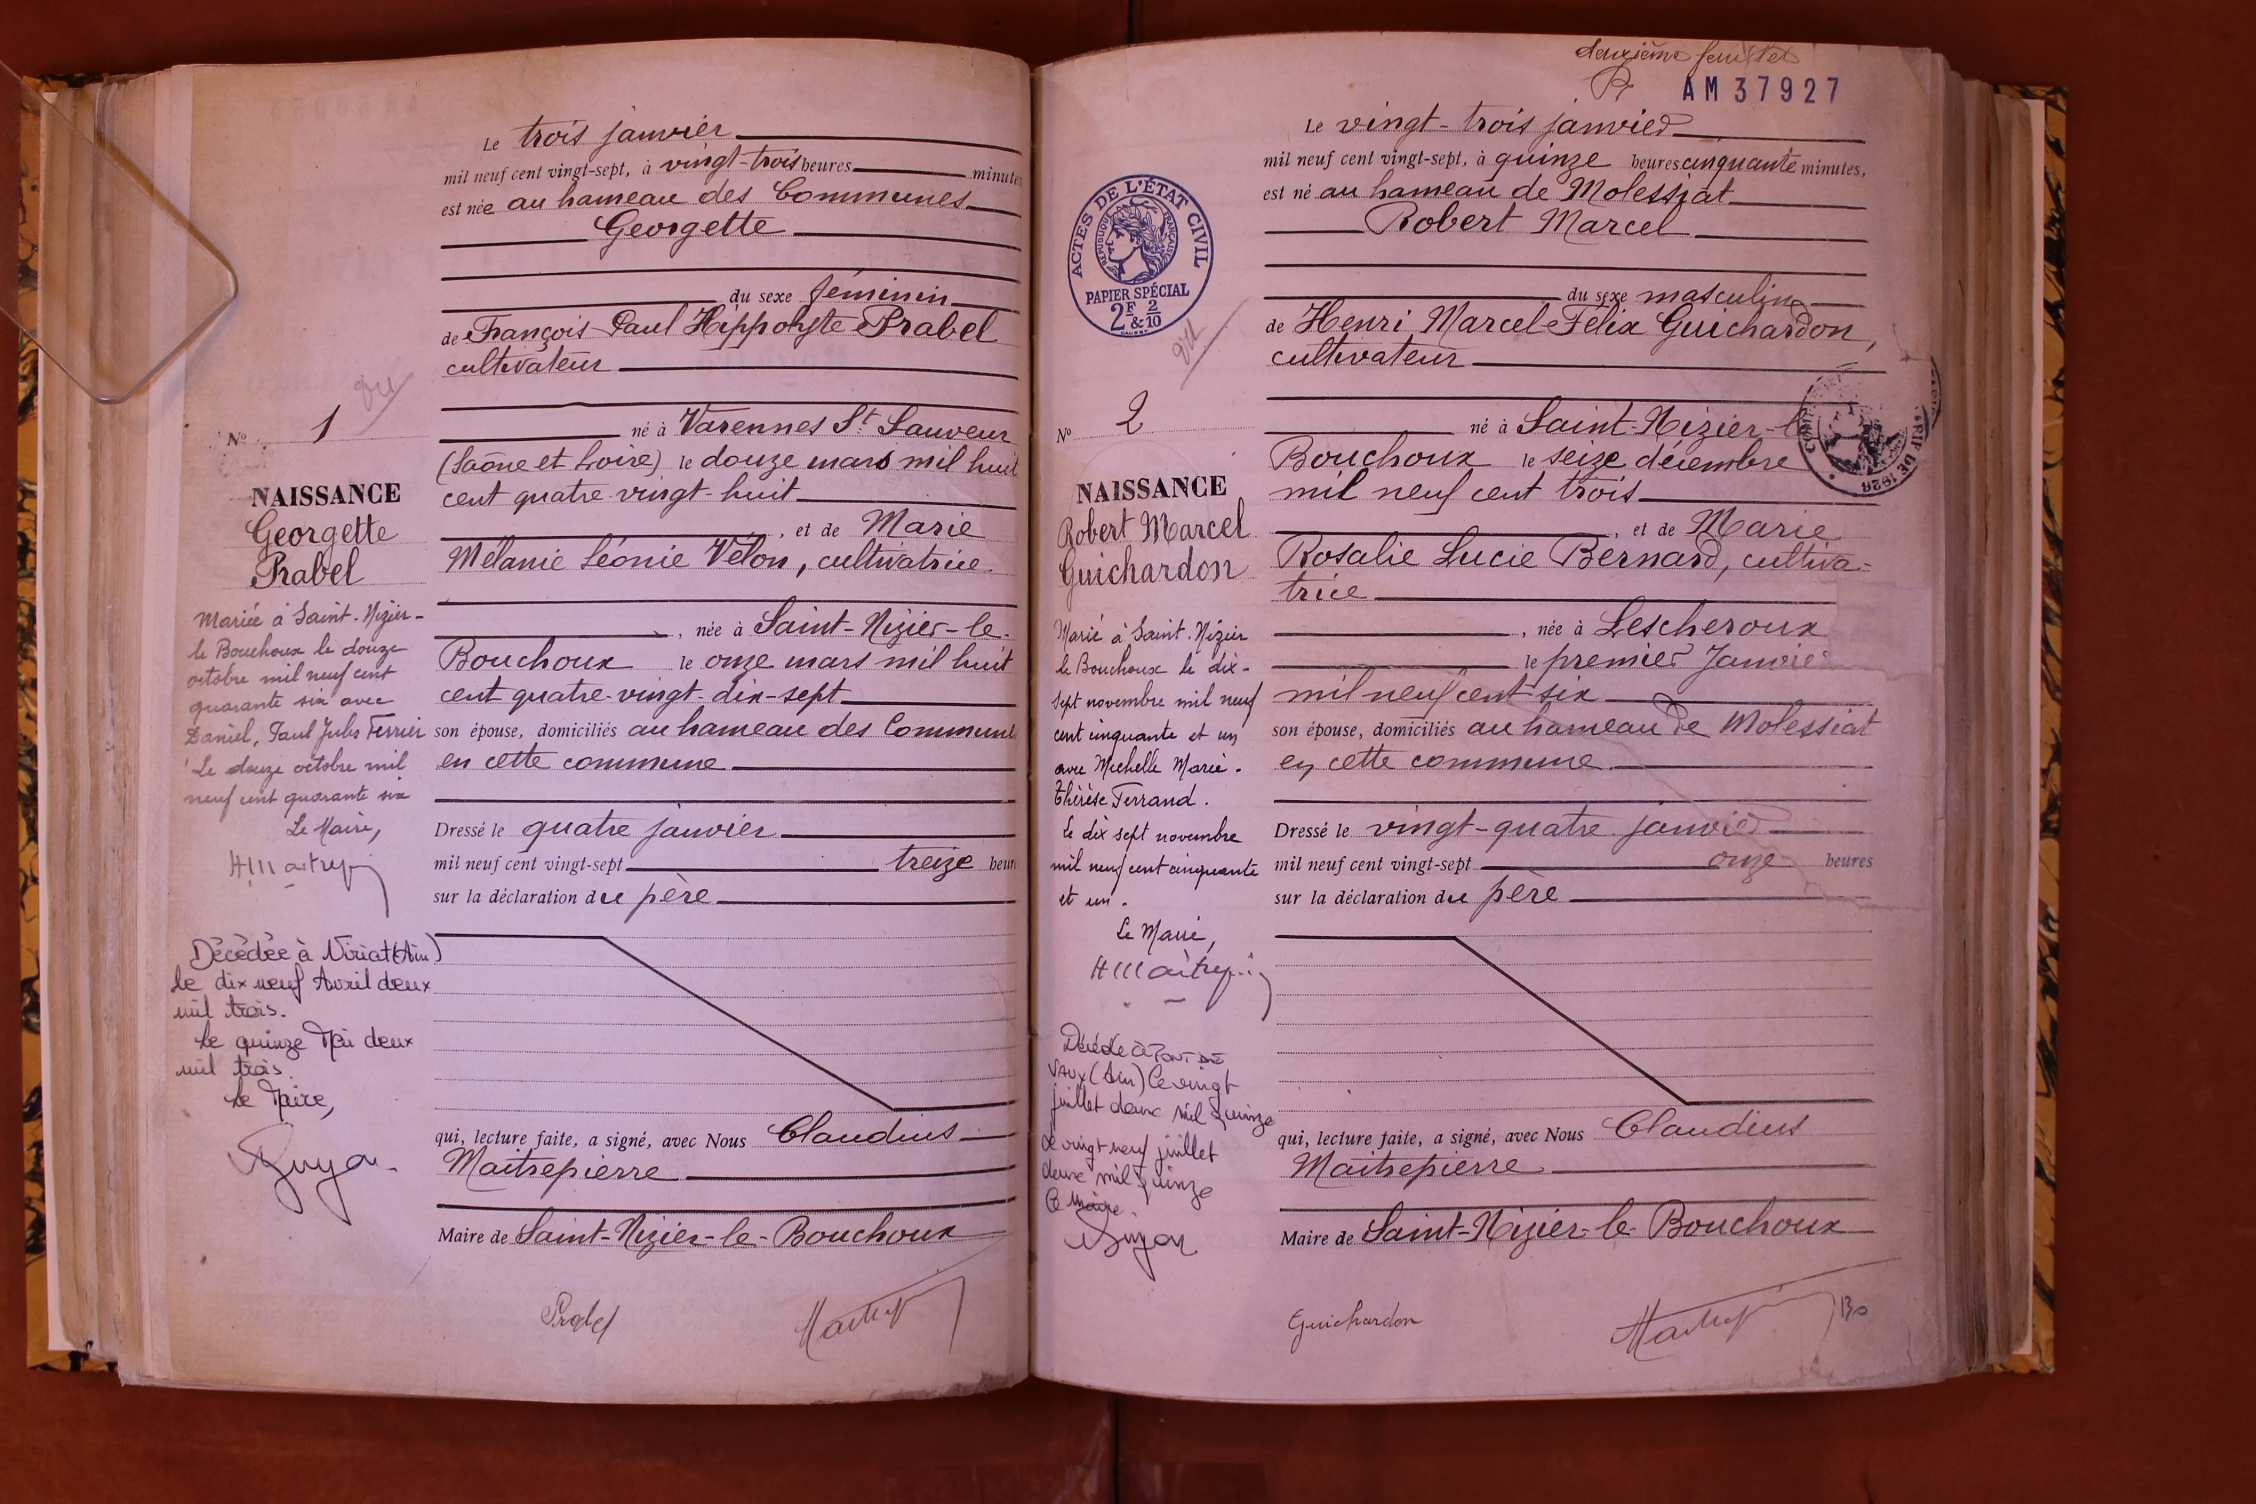 Le trois janvier
mil neuf cent vingt-sept, à vingt-trois heures minutes
est née au hameau des Communes
Georgette
du sexe féminin
de François Paul Hippolyte Prabel
cultivateur
né à Varennes St Sauveur
(Saône et Loire) le douze mars mil huit
cent quatre-vingt-huit
, et de Marie
Mélanie Léonie Vélon, cultivatrice
, née à Saint-Nizier-le-
Bouchoux le onze mars mil huit
cent quatre-vingt-dix-sept
son épouse, domiciliés au hameau des Commun
en cette commune
Dressé le quatre janvier
mil neuf cent vingt-sept treize heur
sur la déclaration du père
qui, lecture faite, a signé, avec Nous Claudius
Maitrepierre
Maire de Saint-Nizier-le-Bouchoux
Prabel
vu
N° 1
NAISSANCE
Georgette
Prabel
Mariée à Saint-Nizier-
le Bouchoux le douze
octobre mil neuf cent
quarante six avec
Daniel, Paul Jules Ferrier
Le douze octobre mil
neuf cent quarante six
Le Maire,
Décédée à Viriat (Ain)
le dix neuf Avril deux
mil trois.
Le quinze Mai deux
mil trois.
Le Maire,
deuxième feuillet
AM 37927
Le vingt-trois janvier
mil neuf cent vingt-sept, à quinze heures cinquante minutes,
est né au hameau de Molessiat
Robert Marcel
du sexe masculin
de Henri Marcel Félix Guichardon,
cultivateur
né à Saint-Nizier-l
Bouchoux le seize décembre
mil neuf cent trois
, et de Marie
Rosalie Lucie Bernard, cultiva-
trice
, née à Lescheroux
le premier Janvier
mil neuf cent six
son épouse, domiciliés au hameau de Molessiat
en cette commune
Dressé le vingt-quatre janvier
mil neuf cent vingt-sept onze heures
sur la déclaration du père
qui, lecture faite, a signé, avec Nous Claudius
Maitrepierre
Maire de Saint-Nizier-le-Bouchoux
Guichardon
ACTES DE L'ÉTAT CIVIL
RÉPUBLIQUE FRANÇAISE
PAPIER SPÉCIAL
2F & 2/10
vu
N° 2
NAISSANCE
Robert Marcel
Guichardon
Marié à Saint-Nizier
le Bouchoux le dix-
sept novembre mil neuf
cent cinquante et un
avec Michelle Marie-
Thérèse Ferrand.
Le dix sept novembre
mil neuf cent cinquante
et un.
Le Maire,
Décédé à PONT DE
VAUX (Ain) le vingt
juillet deux mil quinze
Le vingt neuf juillet
deux mil quinze
Le Maire.